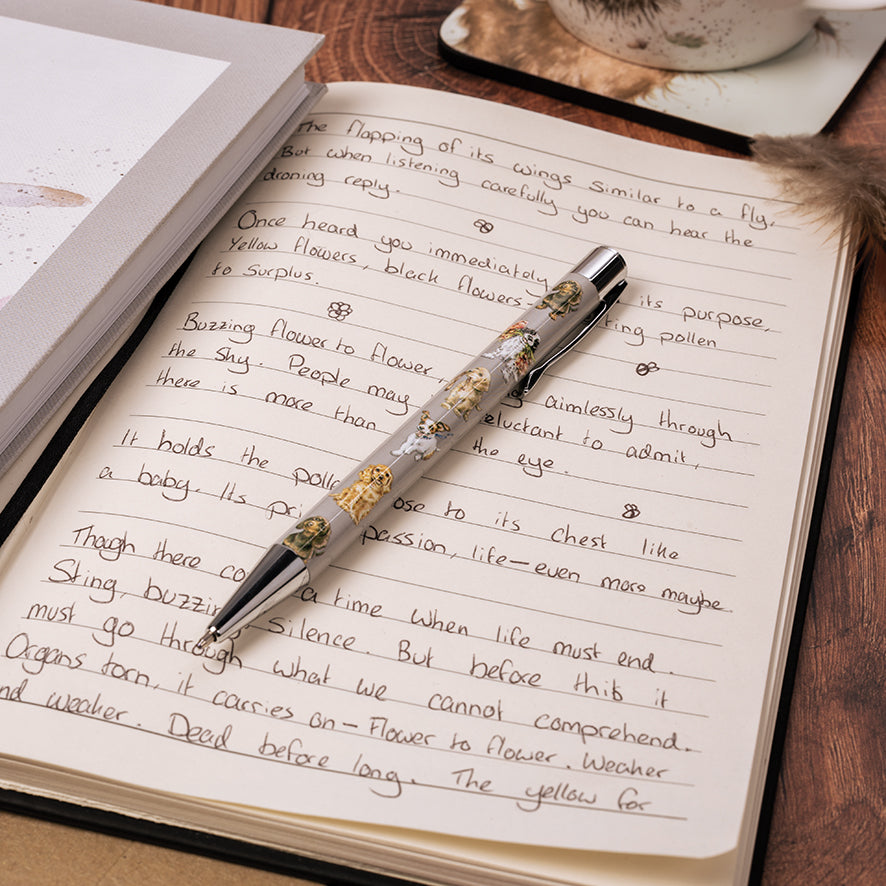 The flapping of its wings similar to a fly,
But when listening carefully you can hear the
droning reply.
Once heard you immediately its purpose,
Yellow flowers, black flowers pollen
to surplus.
Buzzing flower to flower, aimlessly through
the sky. People may reluctant to admit,
there is more than the eye.
It holds the to its chest like
a baby. Its passion, life—even more maybe.
Though there a time when life must end.
Sting, buzzing Silence. But before this it
must go through what we cannot comprehend.
Organs torn, it carries on - Flower to flower. Weaker
and weaker. Dead before long. The yellow for